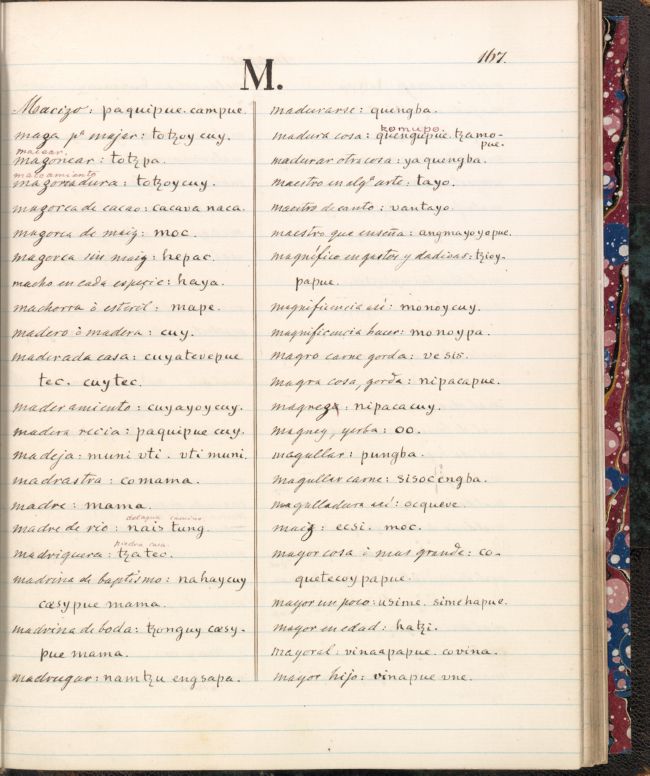 167.
M.
Macizo: paquipue. campue.
maga pª majar: totzoy cuy.
macear,
magonear: totzpa.
maceamiento
mazonadura: totzoycuy.
mazorca de cacao: cacava naca.
mazorca de maiz: moc.
mazorca sin maiz: hepac.
macho en cada especie: haya.
machorra ò esteril: mape.
madero ò madera: cuy.
maderada casa: cuyatevepue
tec. cuytec.
maderamiento: cuyayoycuy.
madera recia: paquipue cuy.
madeja: muni vti. vti muni.
madrastra: comama.
madre: mama.
del agua camino
madre de rio: nais tung.
piedra casa
madriguera: tzatec.
madrina de baptismo: nahaycuy
cæsypue mama.
madrina de boda: tzonguy cæsy-
pue mama.
madrugar: namtzu engsapa.
madurarse: quengba.
komupo.
madura cosa: quengupue. tzamo-
pue.
madurar otra cosa: yaquengba.
maestro en algª arte: tayo.
maestro de canto: vantayo.
maestro que enseña: angmayoyopue.
magnifico en gastos y dadivas: tzioy-
papue.
magnificencia así: monoycuy.
magnificencia hacer: monoypa.
magro carne gorda: ve sis.
magra cosa, gorda: nipacapue.
magreza: nipacacuy.
maguey, yerba: oo.
magullar: pungba.
magullar carne: sisocengba.
magulladura así: ocqueve.
maiz: ecsi. moc.
mayor cosa ò mas grande: co-
quetecoy papue.
mayor un poco: usime. simehapue.
mayor en edad: hatzi.
mayoral: vinaapapue. covina.
mayor hijo: vinapue vne.